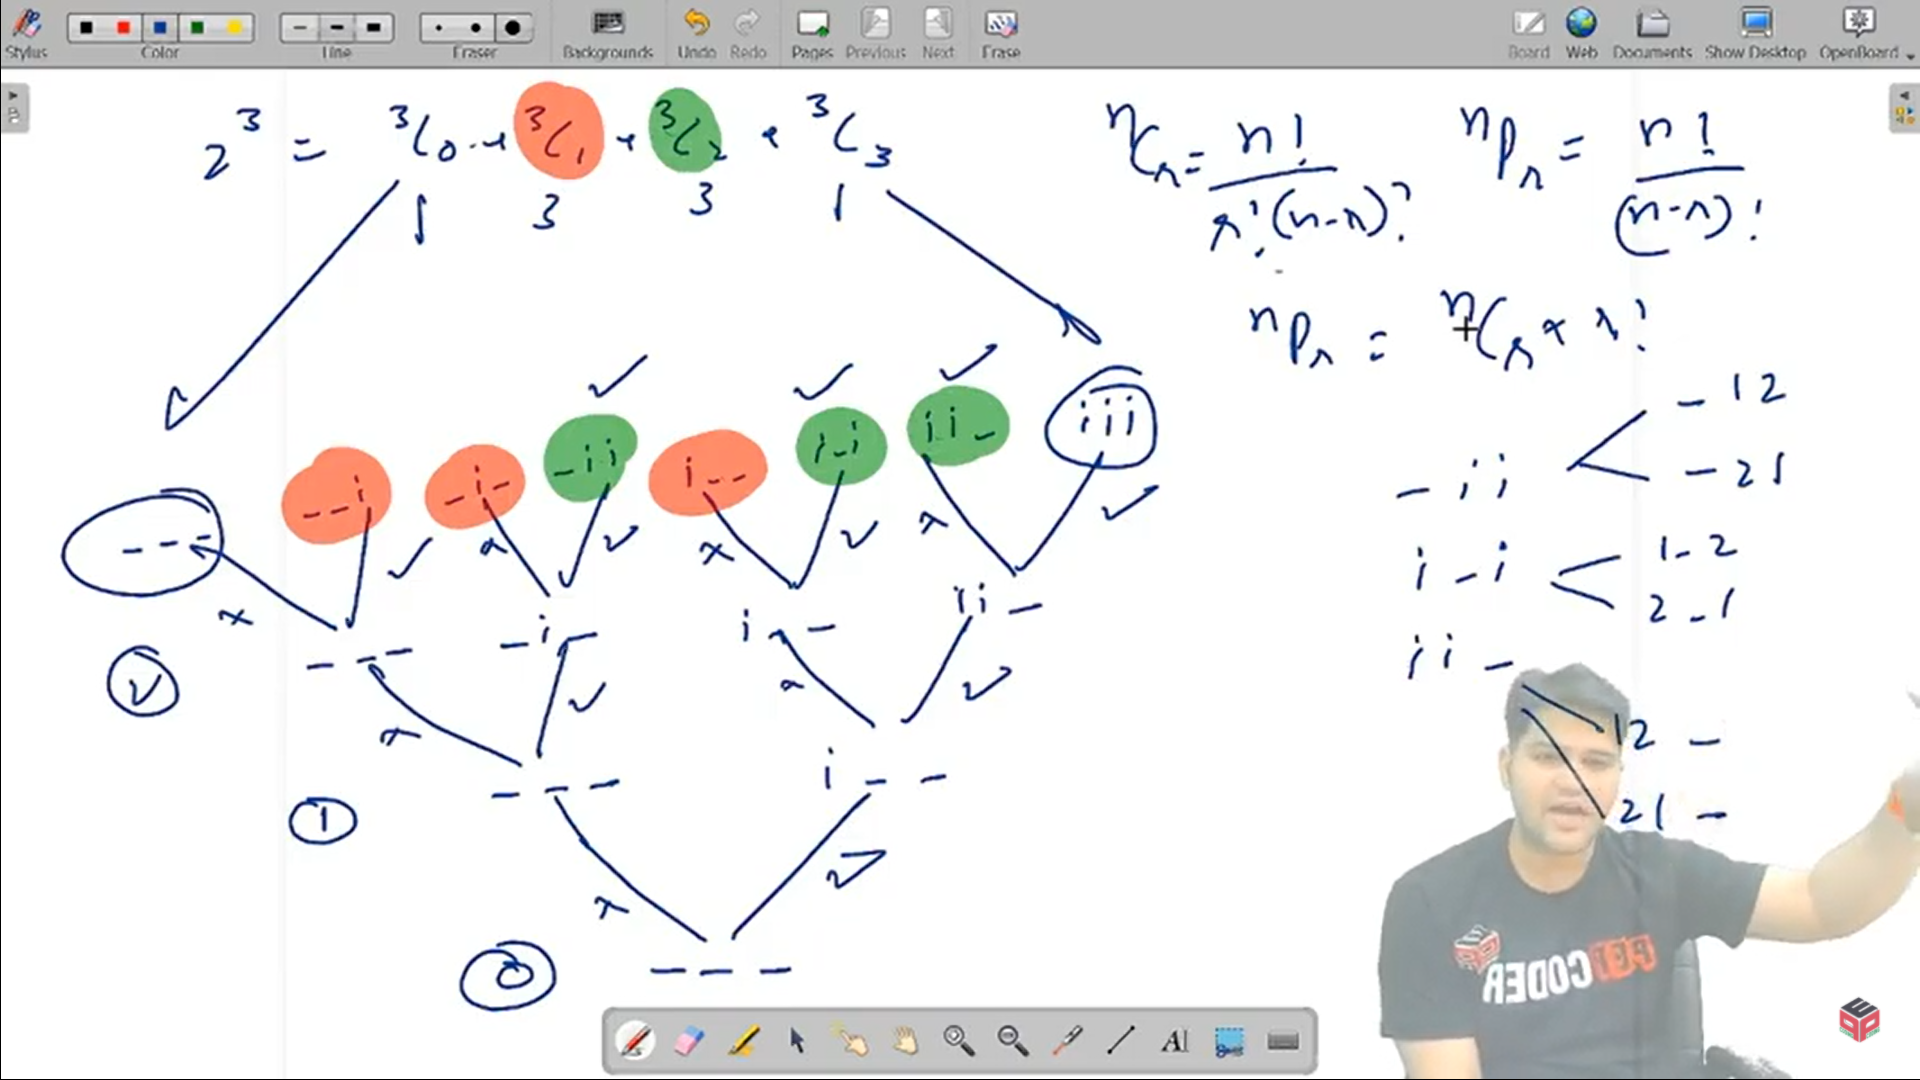 Stylus
Color
Line
Eraser
Backgrounds
Undo
Redo
Pages
Previous
Next
Erase
Board
Web
Documents
Show Desktop
OpenBoard
2³ = ³C₀ + ³C₁ + ³C₂ + ³C₃
1 3 3 1
ⁿCᵣ = n! / r!(n-r)!
ⁿPᵣ = n! / (n-r)!
ⁿPᵣ = ⁿCᵣ * r!
_ _ _
_ _ i
_ i _
_ i i
i _ _
i _ i
i i _
i i i
x ✓ x ✓ x ✓ x ✓
2
_ _ _
_ i _
i _ _
i i _
x ✓ x ✓
1
_ _ _
i _ _
x ✓
0
_ _ _
_ i i
_ 1 2
_ 2 1
i _ i
1 _ 2
2 _ 1
i i _
1 2 _
2 1 _
PEPCODER
AI
PEP